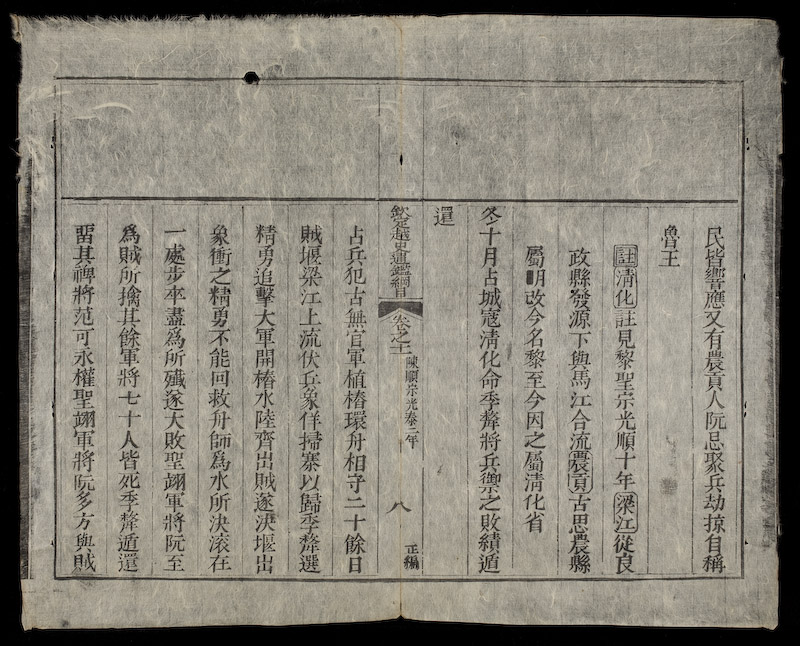 民皆響應又有農貢人阮忌聚兵劫掠自稱
魯王
註清化註見黎聖宗光順十年梁江從良
政縣發源下與馬江合流農貢古思農縣
屬明改今名黎至今因之屬清化省
冬十月占城寇清化命季犛將兵禦之敗績遁
還
欽定越史通鑑綱目 卷之十一 陳順宗光泰二年 八 正編
占兵犯古無官軍植樁環舟相守二十餘日
賊堰梁江上流伏兵象佯掃寨以歸季犛選
精勇追擊大軍開樁水陸齊出賊遂決堰出
象衝之精勇不能回救舟師爲水所決滚在
一處步卒盡爲所殲遂大敗聖翊軍將阮至
爲賊所擒其餘軍將七十人皆死季犛遁還
留其裨將范可永權聖翊軍將阮多方與賊